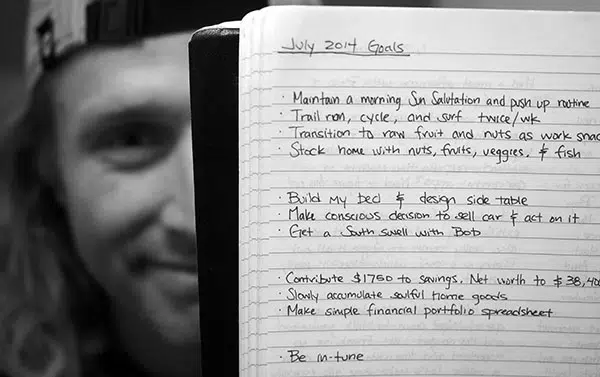 July 2014 Goals
· Maintain a morning Sun Salutation and push up routine
· Trail run, cycle, and surf twice/wk
· Transition to raw fruit and nuts as work snac
· Stock home with nuts, fruits, veggies, & fish
· Build my bed & design side table
· Make conscious decision to sell car & act on it
· Get a South swell with Bob
· Contribute $1750 to savings. Net worth to $38,400
· Slowly accumulate soulful home goods
· Make simple financial portfolio spreadsheet
· Be in-tune